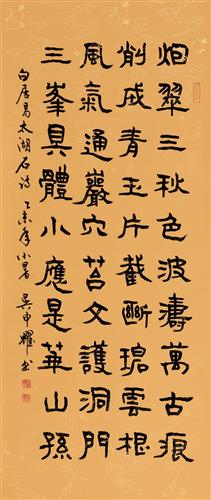 烟翠三秋色波濤萬古痕
削成青玉片截斷碧雲根
風氣通巖穴苔文護洞門
三峯具體小應是華山孫
白居易太湖石詩 乙未年小暑 吳申耀書